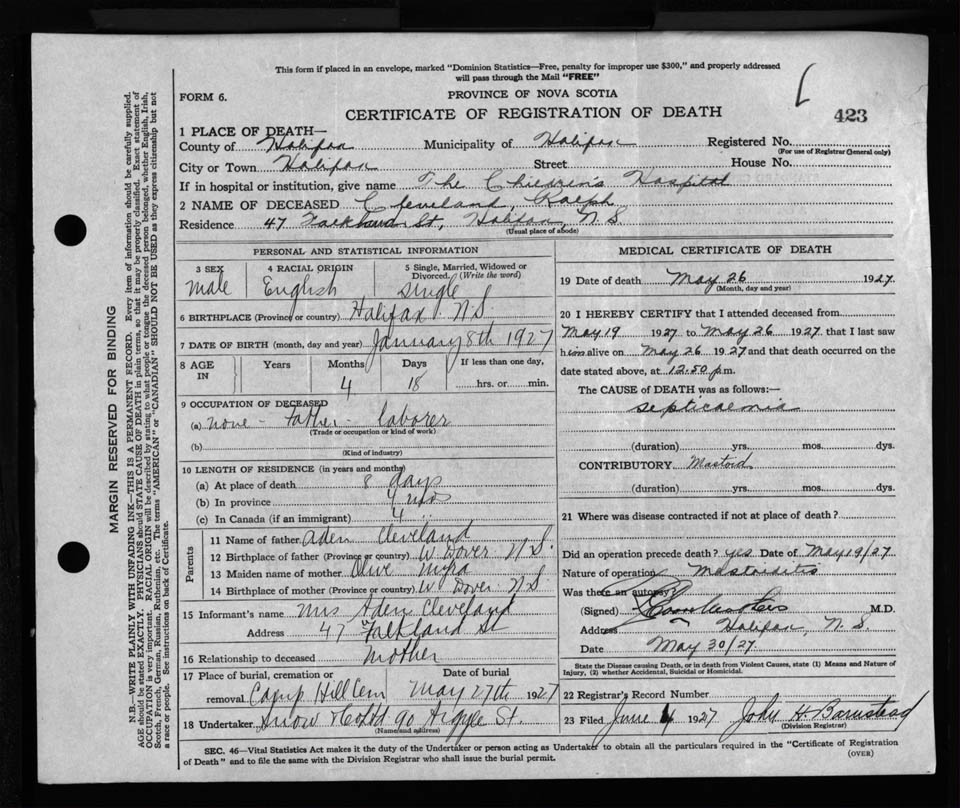 This form if placed in an envelope, marked "Dominion Statistics—Free, penalty for improper use $300," and properly addressed
will pass through the Mail "FREE"
FORM 6.
PROVINCE OF NOVA SCOTIA
CERTIFICATE OF REGISTRATION OF DEATH
423
1 PLACE OF DEATH—
County of Halifax Municipality of Halifax Registered No.
(For use of Registrar General only)
City or Town Halifax Street House No.
If in hospital or institution, give name The Children's Hospital
2 NAME OF DECEASED Cleveland, Ralph
Residence 47 Falkland St, Halifax, N.S.
(Usual place of abode)
PERSONAL AND STATISTICAL INFORMATION
3 SEX 4 RACIAL ORIGIN 5 Single, Married, Widowed or Divorced. (Write the word)
male English single
6 BIRTHPLACE (Province or country) Halifax N.S.
7 DATE OF BIRTH (month, day and year) January 8th 1927
8 AGE IN Years Months Days If less than one day,
4 18 hrs. or min.
9 OCCUPATION OF DECEASED
(a) none - Father - laborer
(Trade or occupation or kind of work)
(b)
(Kind of industry)
10 LENGTH OF RESIDENCE (in years and months)
(a) At place of death 8 days
(b) In province 4 mos
(c) In Canada (if an immigrant) 4
Parents
11 Name of father Aden Cleveland
12 Birthplace of father (Province or country) W Dover N S.
13 Maiden name of mother Olive Myra
14 Birthplace of mother (Province or country) W Dover N S
15 Informant's name Mrs Aden Cleveland
Address 47 Falkland St
16 Relationship to deceased mother
17 Place of burial, cremation or removal Date of burial
Camp Hill Cem May 27th 1927
18 Undertaker Snow & Co Ltd 90 Argyle St.
(Name and address)
MEDICAL CERTIFICATE OF DEATH
19 Date of death May 26 1927.
(Month, day and year)
20 I HEREBY CERTIFY that I attended deceased from
May 19 1927 to May 26 1927. that I last saw
him alive on May 26 1927 and that death occurred on the
date stated above, at 12.50 p.m.
The CAUSE of DEATH was as follows:—
septicaemia
(duration) yrs. mos. dys.
CONTRIBUTORY Mastoid
(duration) yrs. mos. dys.
21 Where was disease contracted if not at place of death?
Did an operation precede death? yes Date of May 19/27
Nature of operation Mastoiditis
Was there an autopsy?
(Signed) M.D.
Address Halifax, N. S.
Date May 30/27.
State the Disease causing Death, or in death from Violent Causes, state (1) Means and Nature of
Injury, (2) whether Accidental, Suicidal or Homicidal.
22 Registrar's Record Number
23 Filed June 1927 John H Barnstead
(Division Registrar)
SEC. 46—Vital Statistics Act makes it the duty of the Undertaker or person acting as Undertaker to obtain all the particulars required in the "Certificate of Registration
of Death" and to file the same with the Division Registrar who shall issue the burial permit.
(OVER)
MARGIN RESERVED FOR BINDING
N.B.—WRITE PLAINLY WITH UNFADING INK.—THIS IS A PERMANENT RECORD. Every item of information should be carefully supplied.
AGE should be stated EXACTLY. PHYSICIANS should STATE CAUSE OF DEATH in plain terms, so that it may be properly classified. Exact statement of
OCCUPATION is very important. RACIAL ORIGIN will be described by stating to what people or tongue the deceased person belonged, whether English, Irish,
Scotch, French, German, Russian, Ruthenian, etc. The terms "AMERICAN" or "CANADIAN" SHOULD NOT BE USED as they express citizenship but not
a race or people. See instructions on back of Certificate.